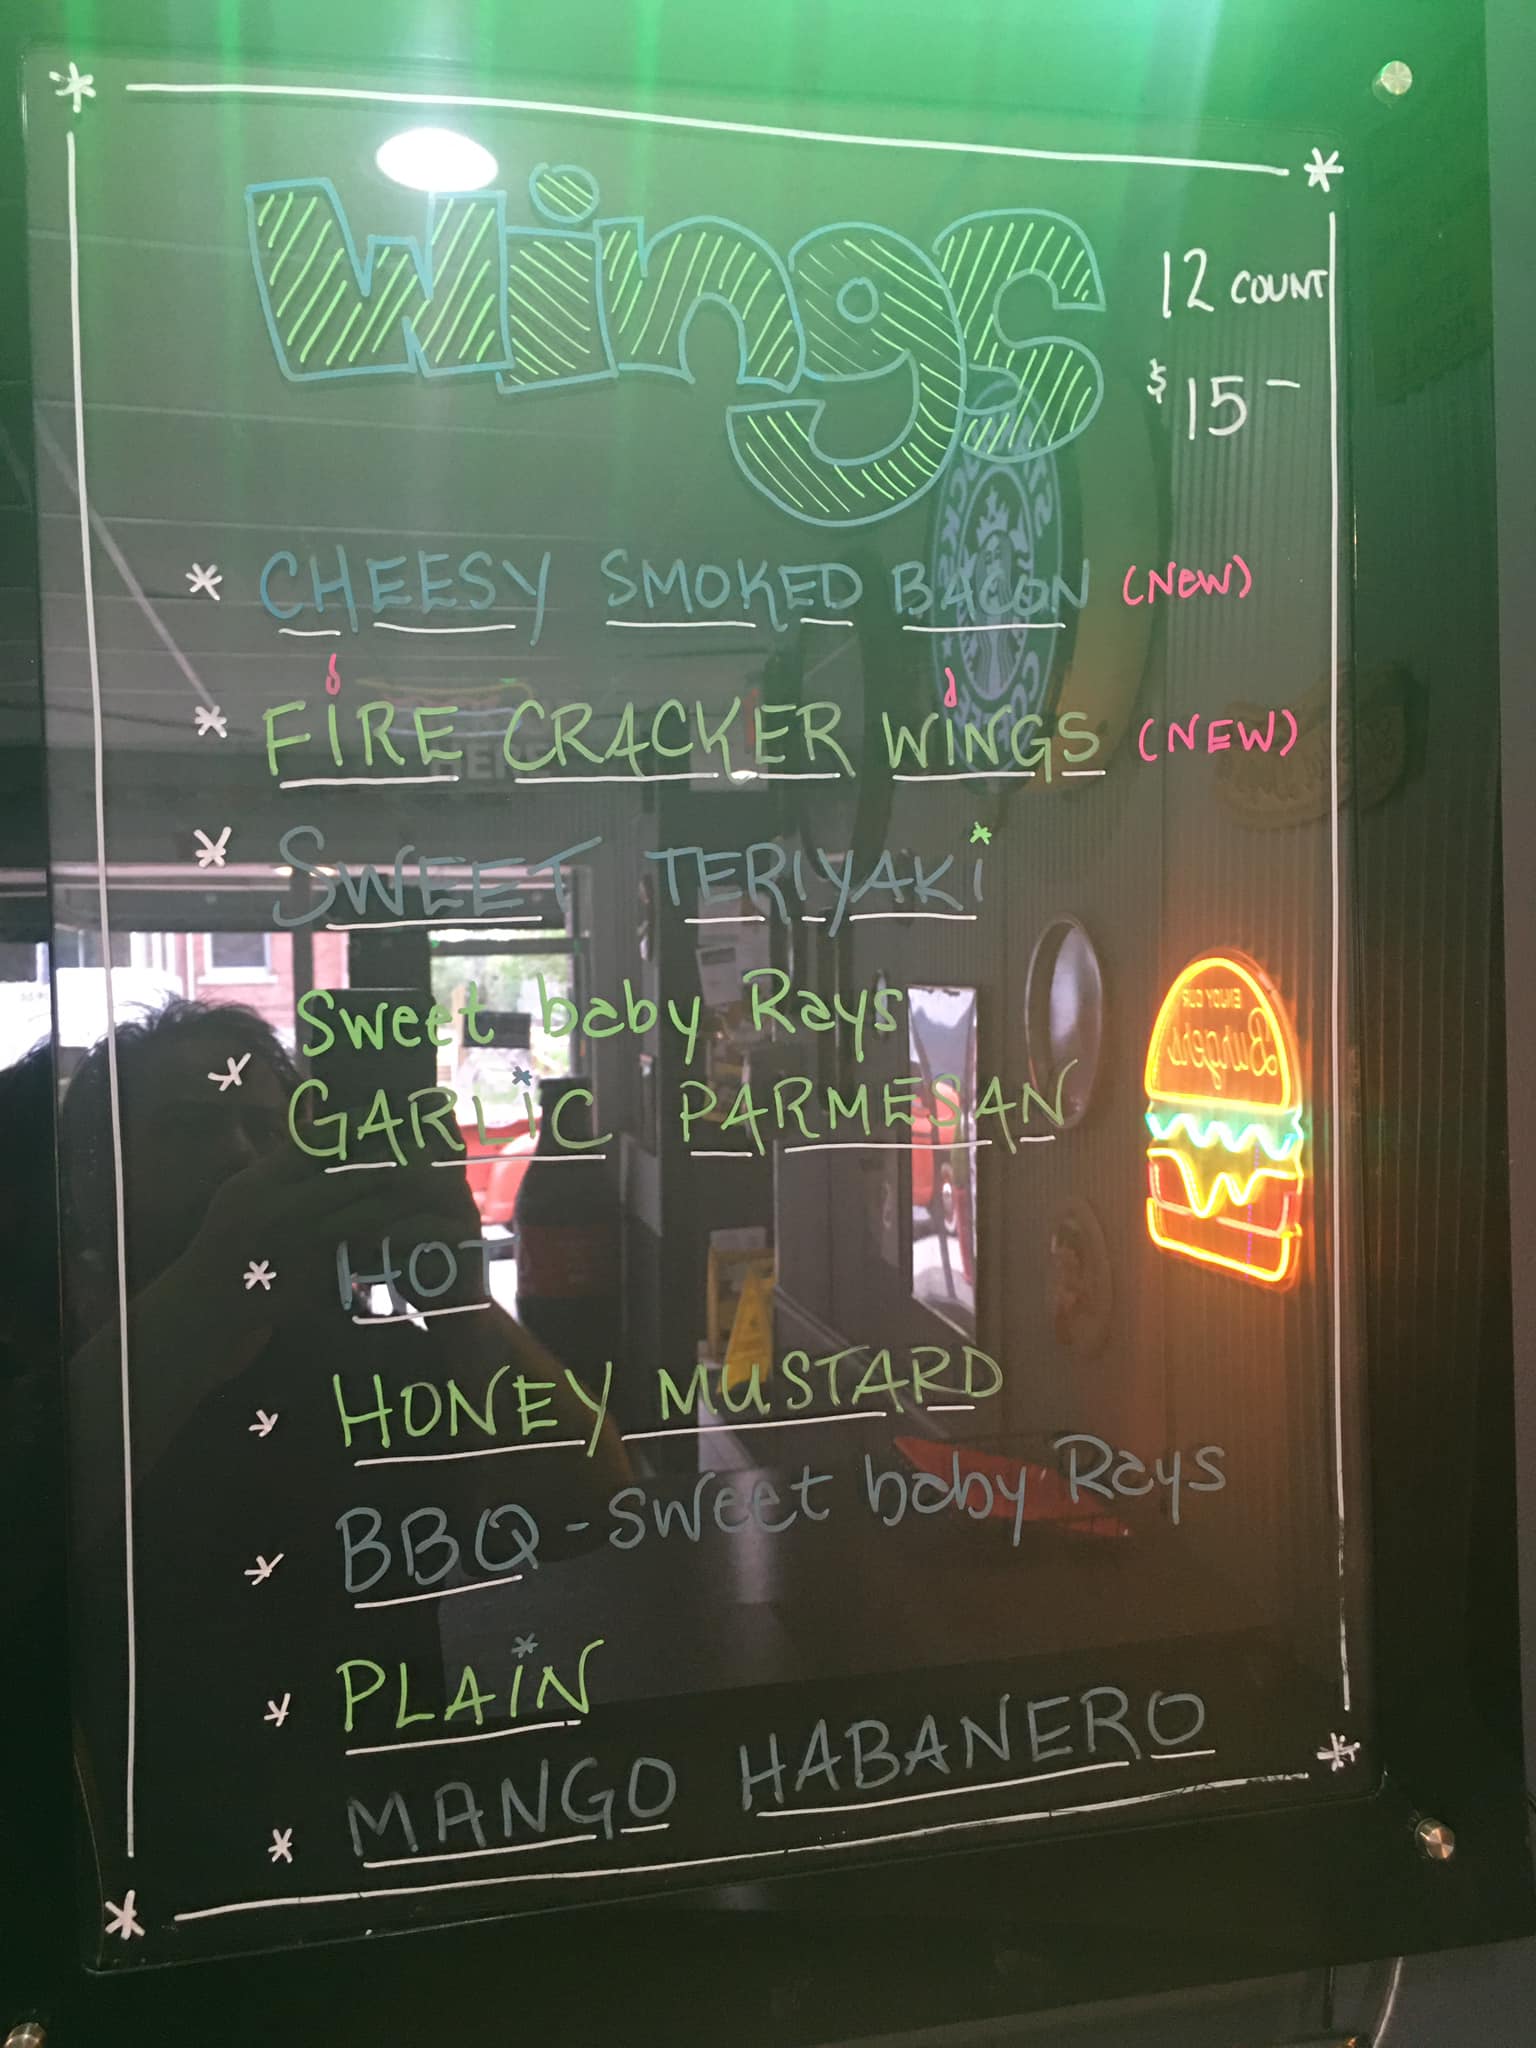 wings
12 COUNT
$15-
* CHEESY SMOKED BACON (NEW)
* FIRE CRACKER WINGS (NEW)
* SWEET TERIYAKI
Sweet baby Rays
* GARLIC PARMESAN
* HOT
* HONEY MUSTARD
* BBQ - Sweet baby Rays
* PLAIN
* MANGO HABANERO
ENJOY OUR
Burgers
HERE